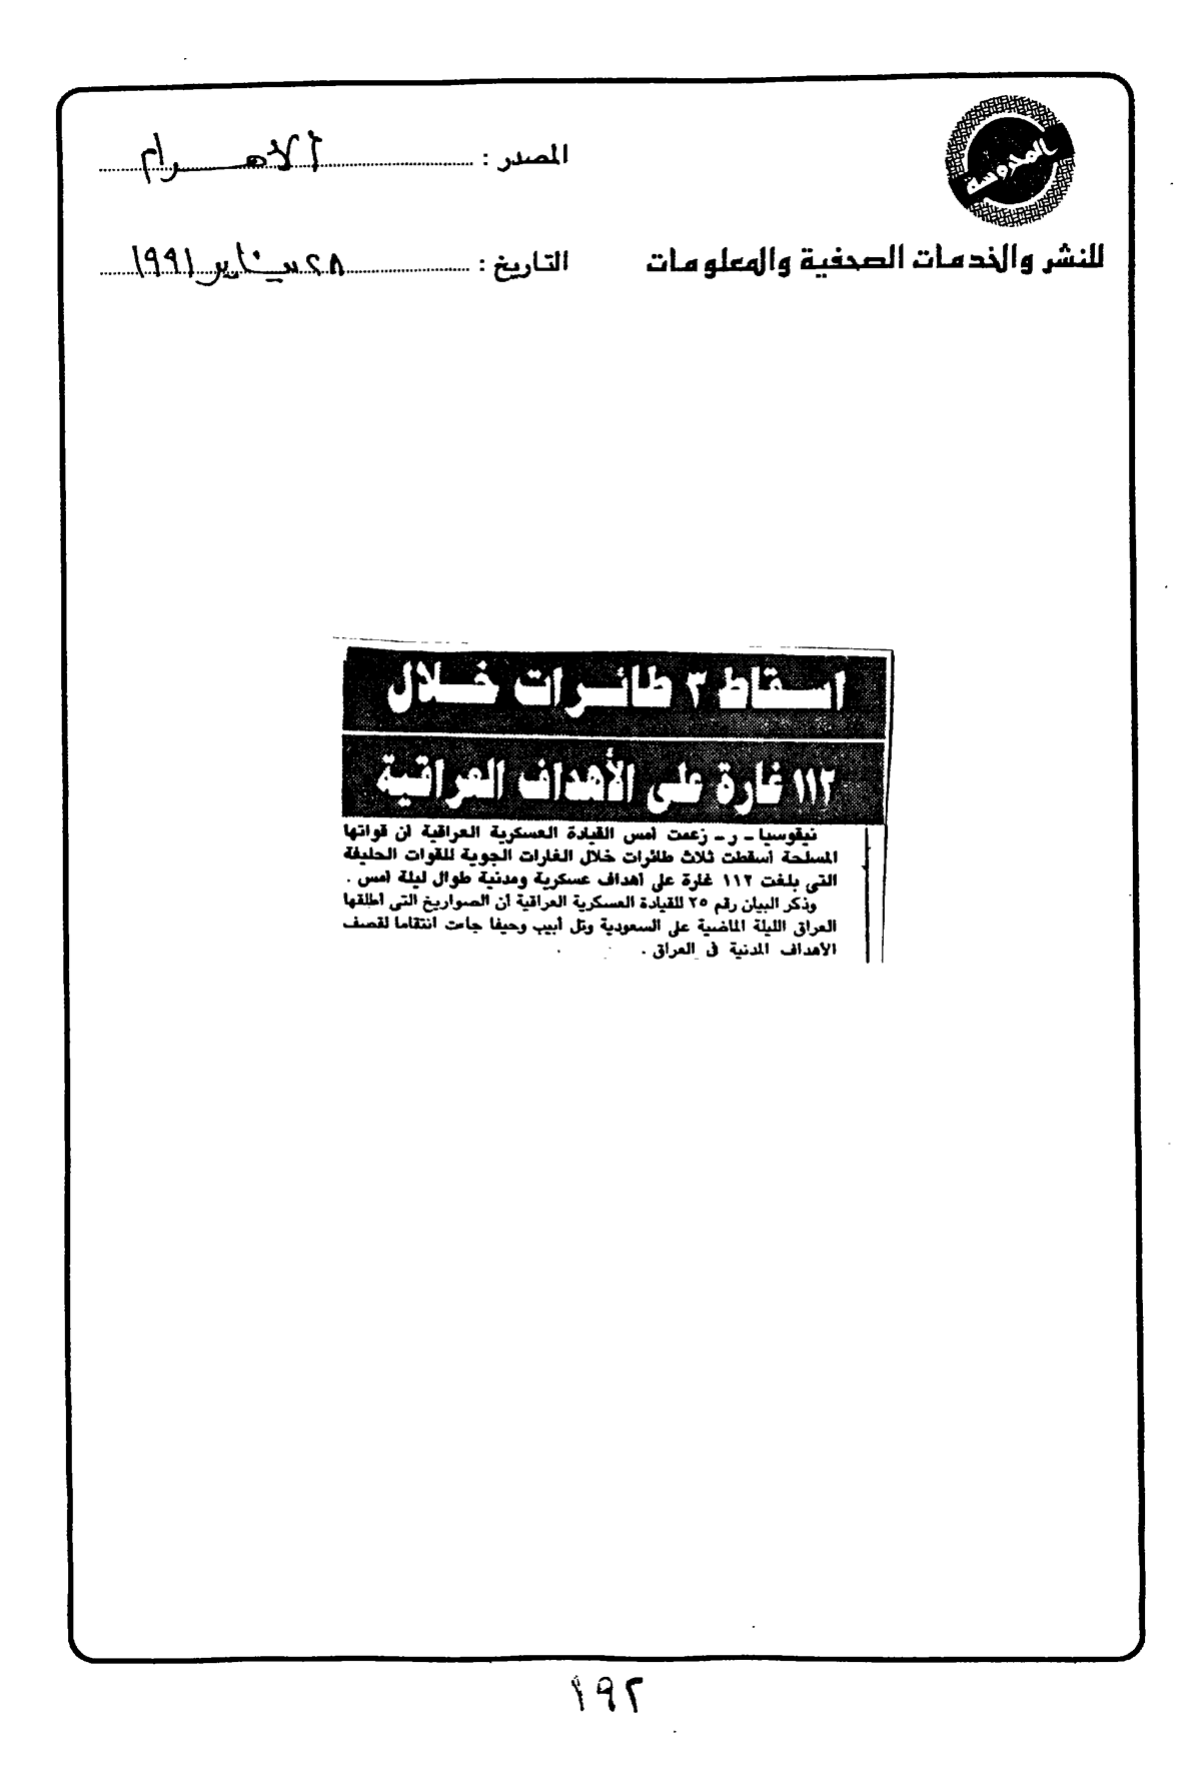 المحروسة
للنشر والخدمات الصحفية والمعلومات
المصدر : الأهرام
التاريخ : ٢٨ يناير ١٩٩١
اسقاط ٣ طائرات خلال
١١٢ غارة على الأهداف العراقية
نيقوسيا - ر - زعمت أمس القيادة العسكرية العراقية أن قواتها
المسلحة أسقطت ثلاث طائرات خلال الغارات الجوية للقوات الحليفة
التى بلغت ١١٢ غارة على أهداف عسكرية ومدنية طوال ليلة أمس .
وذكر البيان رقم ٢٥ للقيادة العسكرية العراقية أن الصواريخ التى أطلقها
العراق الليلة الماضية على السعودية وتل أبيب وحيفا جاءت انتقاما لقصف
الأهداف المدنية فى العراق .
١٩٢